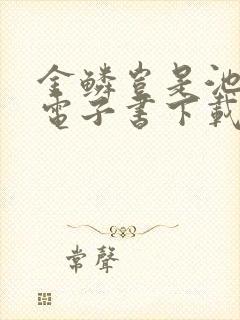 金鱗豈是池
電子書下載
常聲